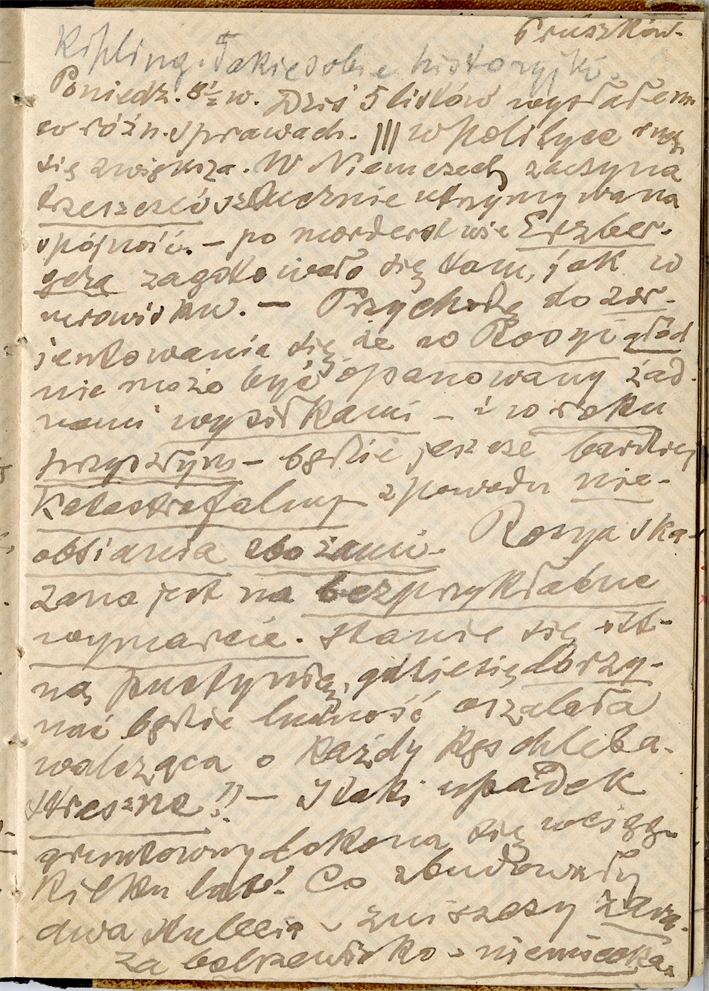 Pruszków.
Kipling. Takie sobie historyjki.
Poniedz. 8½ w. Dziś 5 listów wysłałem
w różn. sprawach. III w polityce
się zwiększa. W Niemczech zaczyna
trzeszczeć sztucznie utrzymywana
spójność. – po morderstwie Erzber-
gera zagotowało się tam, jak w
mrowisku. – Przychodzę do zor-
jentowania się że w Rosyi głód
nie może być opanowany żad-
nemi wysiłkami – i w roku
przyszłym – będzie jeszcze bardziej
katastrofalny z powodu nie-
obsiania zbożami. Rosya ska-
zana jest na bezprzykładne
wymarcie. Stanie się
ną pustynią, gdzie się dorzy-
nać będzie ludność oszalała
walcząca o każdy kęs chleba.
Straszne!! – I taki upadek
gruntowny dokona się w ciągu
kilku lat! Co zbudowały
dwa stulecia – zniszczy zara-
za bolszewicko – niemiecka.